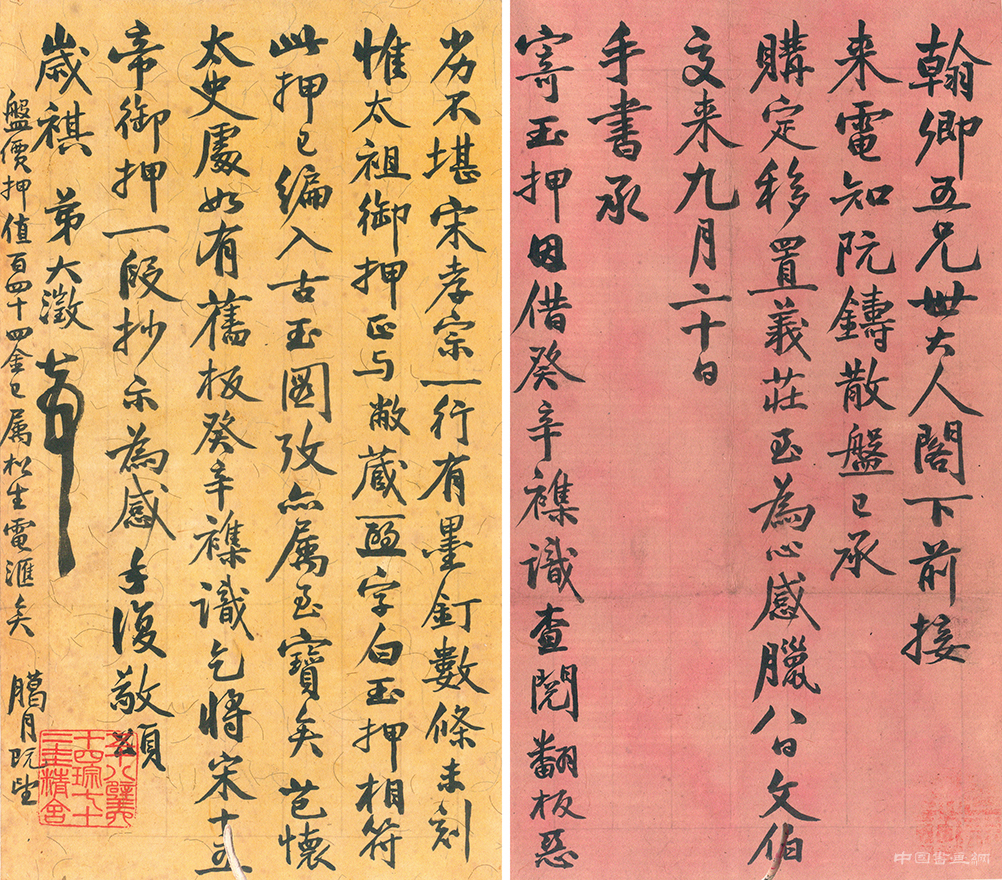 翰卿五兄世大人閣下前接
来電知阮鑄散盤已承
購定移置義莊至為心感臘八日文伯
交来九月二十日
手書承
寄玉押因借癸辛襍識查閱翻板惡
劣不堪宋孝宗一行有墨釘數條未刻
惟太祖御押正与敝蔵字白玉押相符
此押已編入古玉圖攷亦属至寶矣芑懷
太史處如有舊板癸辛襍識乞將宋十五
帝御押一段抄示為感手復敬頌
歲祺 弟大澂頓首
盤價押值百四十四金已属松生電滙矣 臈月既望
五十八璧六
十四琮七十
二圭精舍
中国書画網